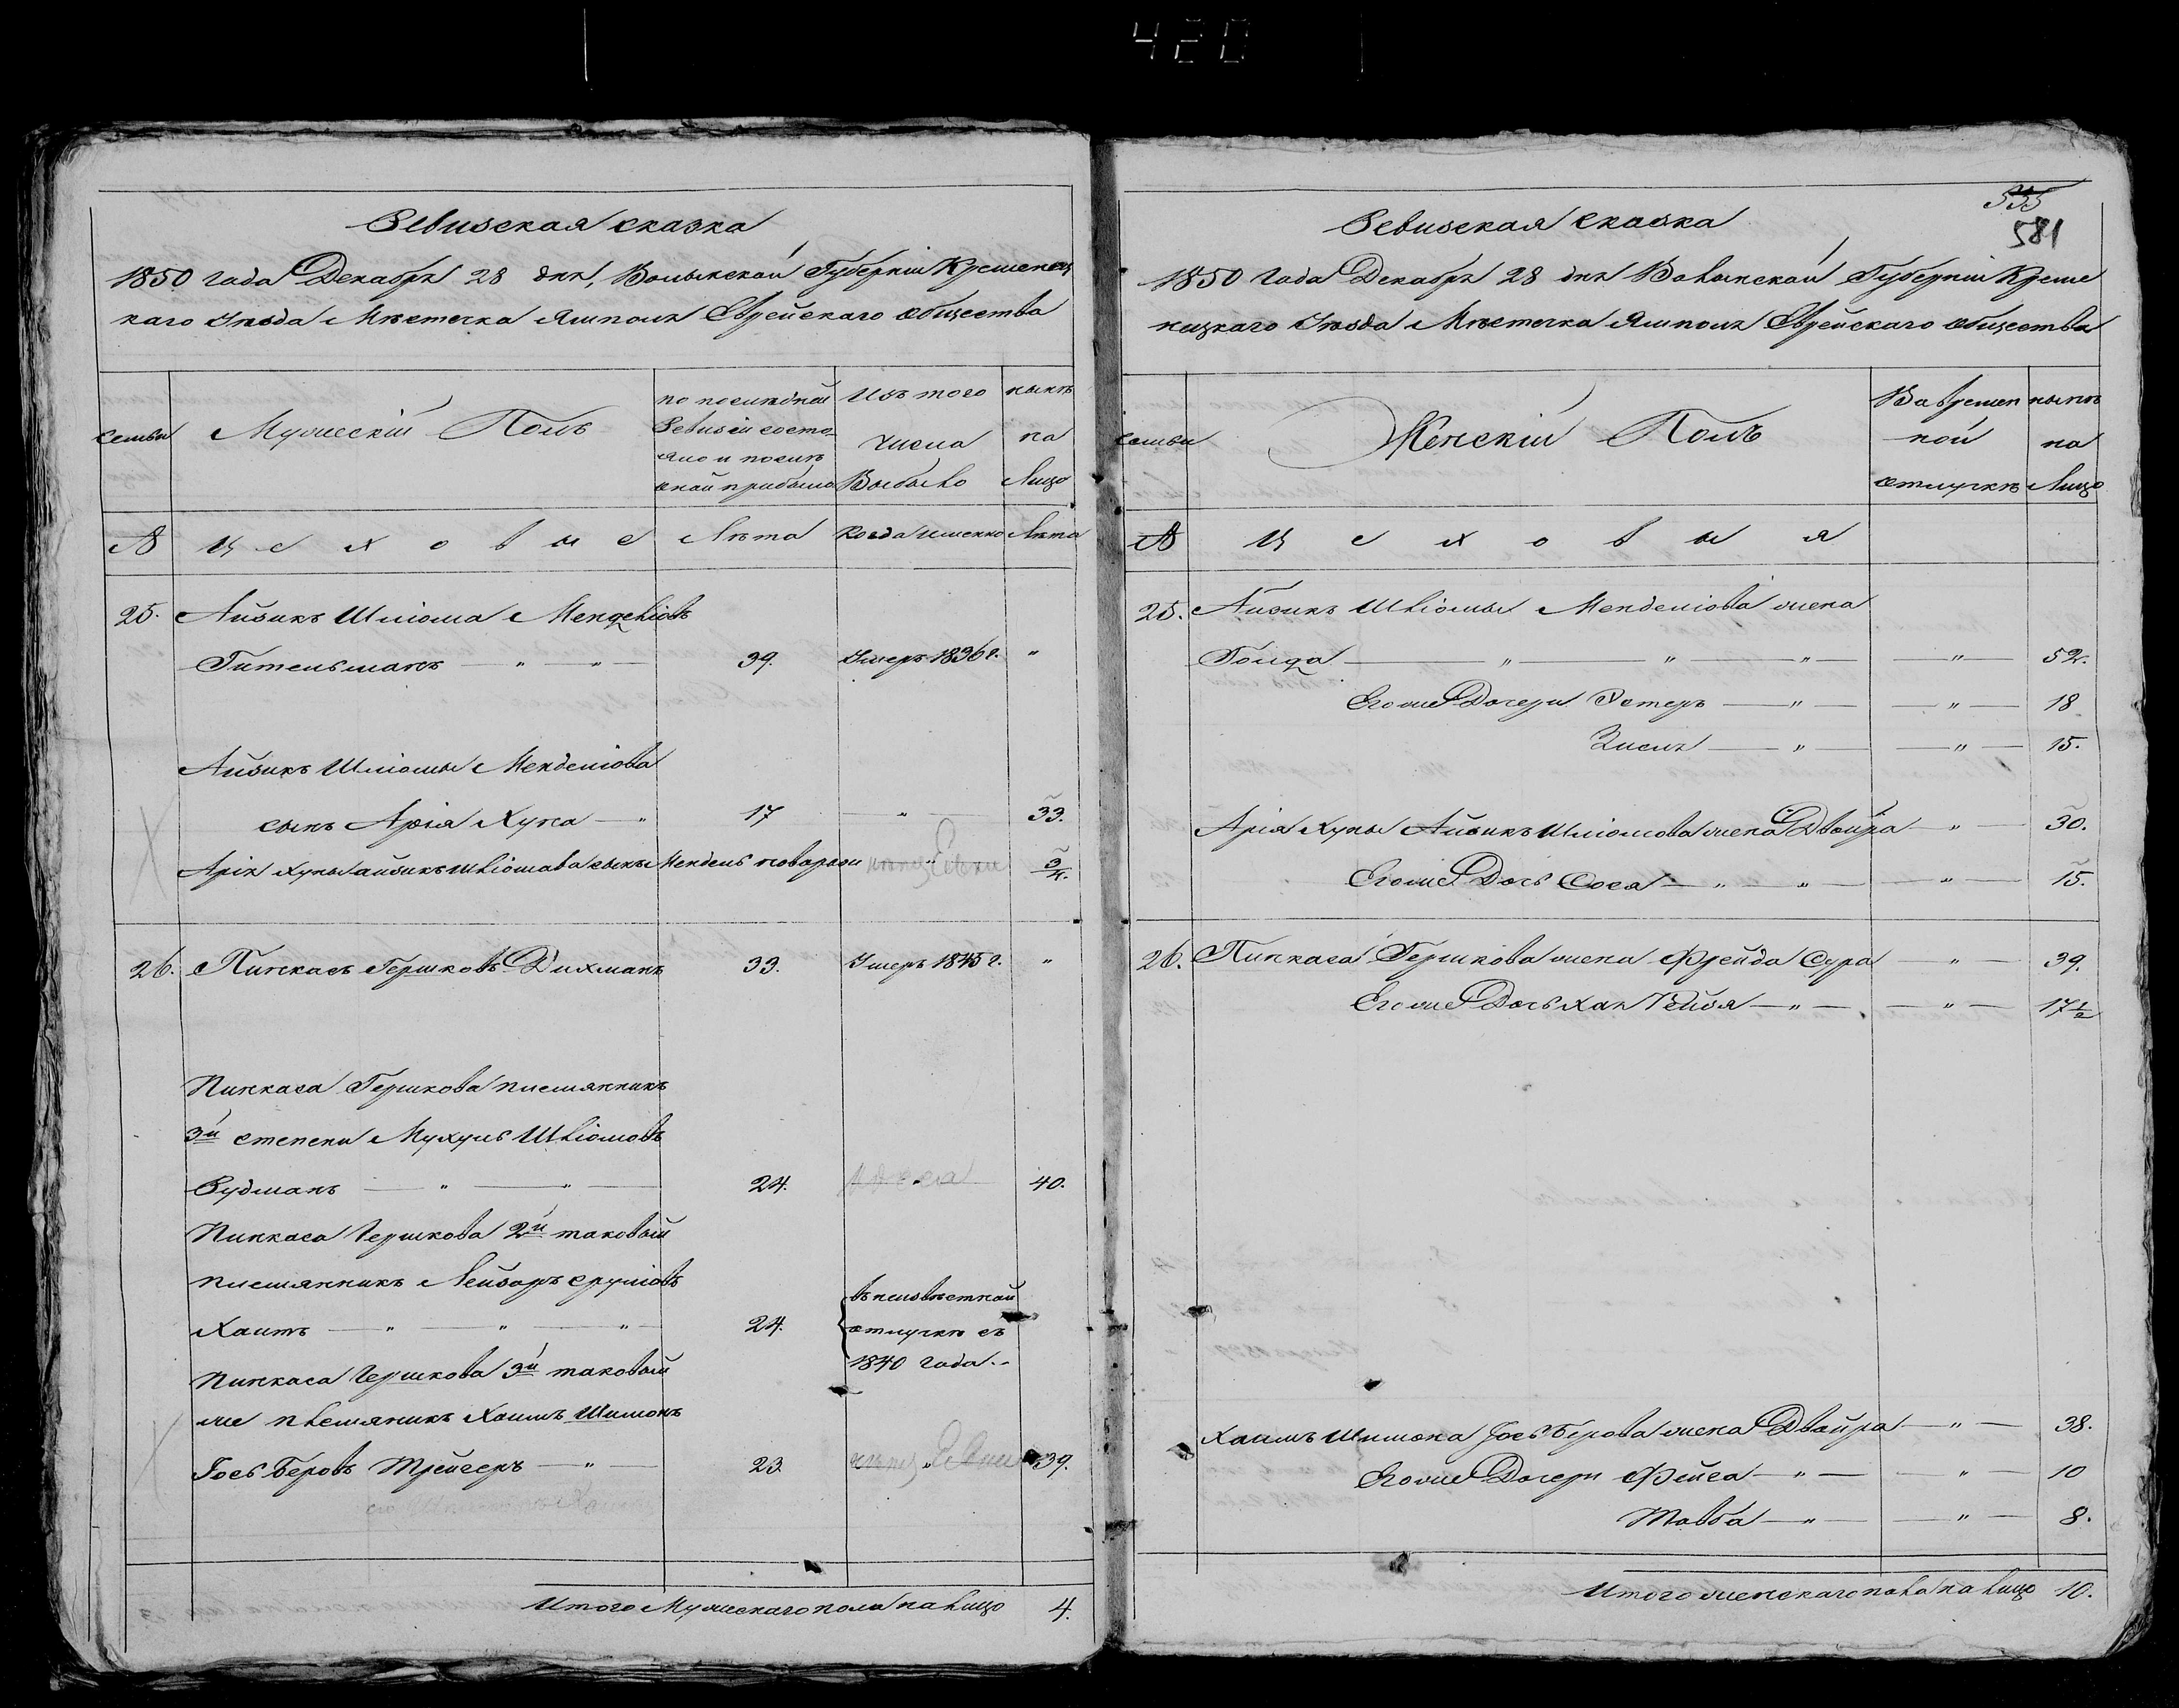 420
Ревизская сказка
1850 года Декабря 28 дня, Волынской Губерніи Кременец
каго Уѣзда Мѣстечка Ямполя Еврейскаго общества
семьи
Мужескій Полъ
по последней
Ревизіи состо-
яло и послѣ
оной прибыло
Изъ того
числа
Выбыло
нынѣ
на
Лицо
№
Цеховые
Лѣта
Когда именно
Лѣта
25. Айзикъ Шліома Менделіовъ
Гительманъ — " — " — 39. Умеръ 1836 г. "
Айзикъ Шліомы Менделіова
сынъ Арія Хуна — " 17 " 33.
Арія Хуны Айзикъ Шліомава сынъ Мендель новорожд 3/4.
26. Пинкасъ Гершковъ Дихманъ 33. Умеръ 1845 г. "
Пинкаса Гершкова племянникъ
3й степени Мухуль Шліомовъ
Рудманъ — " — " — 24. 40.
Пинкаса Гершкова 2й таковый
племянникъ Лейзоръ Сруліовъ
Хаитъ — " — " — " — 24.
въ неизвѣстной
отлучкѣ съ
1840 года.
Пинкаса Гершкова 3й таковый
же племяникъ Хаимъ Шимонъ
Іось Беровъ Трейгеръ — " — 23. " 39.
Итого Мужескаго пола на лицо 4.
535
581
Ревизская сказка
1850 года Декабря 28 дня Волынской Губерніи Креме
нецкаго Уѣзда Мѣстечка Ямполя Еврейскаго общества
семьи
Женскій Полъ
Во времен
ной
отлучкѣ
нынѣ
на
Лицо
№
Цеховыя
25. Айзикъ Шліомы Менделіова жена
Голда — " — " — " — " — 52.
Его же Дочери Эстеръ — " — " — 18
Зисля — " — " — 15.
Арія Хуны Айзикъ Шліомова жена Двойра — " — 30.
Его же Дочь Сося — " — " — " — 15.
26. Пинкаса Гершкова жена Фрейда Сура — " — 39.
Его же Дочь Хая Рейзя — " — " — 17½
Хаимъ Шимона Іось Берова жена Двойра — " — 38.
Его же Дочери Фейга — " — " — 10
Тавба — " — " — 8.
Итого женскаго пола на лицо 10.